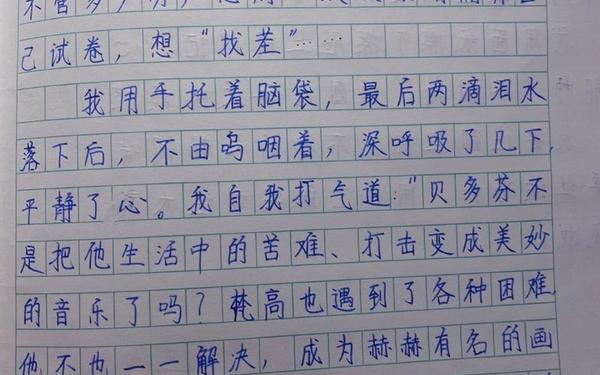 己试卷，想“找茬”……
我用手托着脑袋，最后两滴泪水
落下后，不由呜咽着，深呼吸了几下，
平静了心。我自我打气道：“贝多芬不
是把他生活中的苦难、打击变成美妙
的音乐了吗？梵高也遇到了各种困难，
他不也一一解决，成为赫赫有名的画